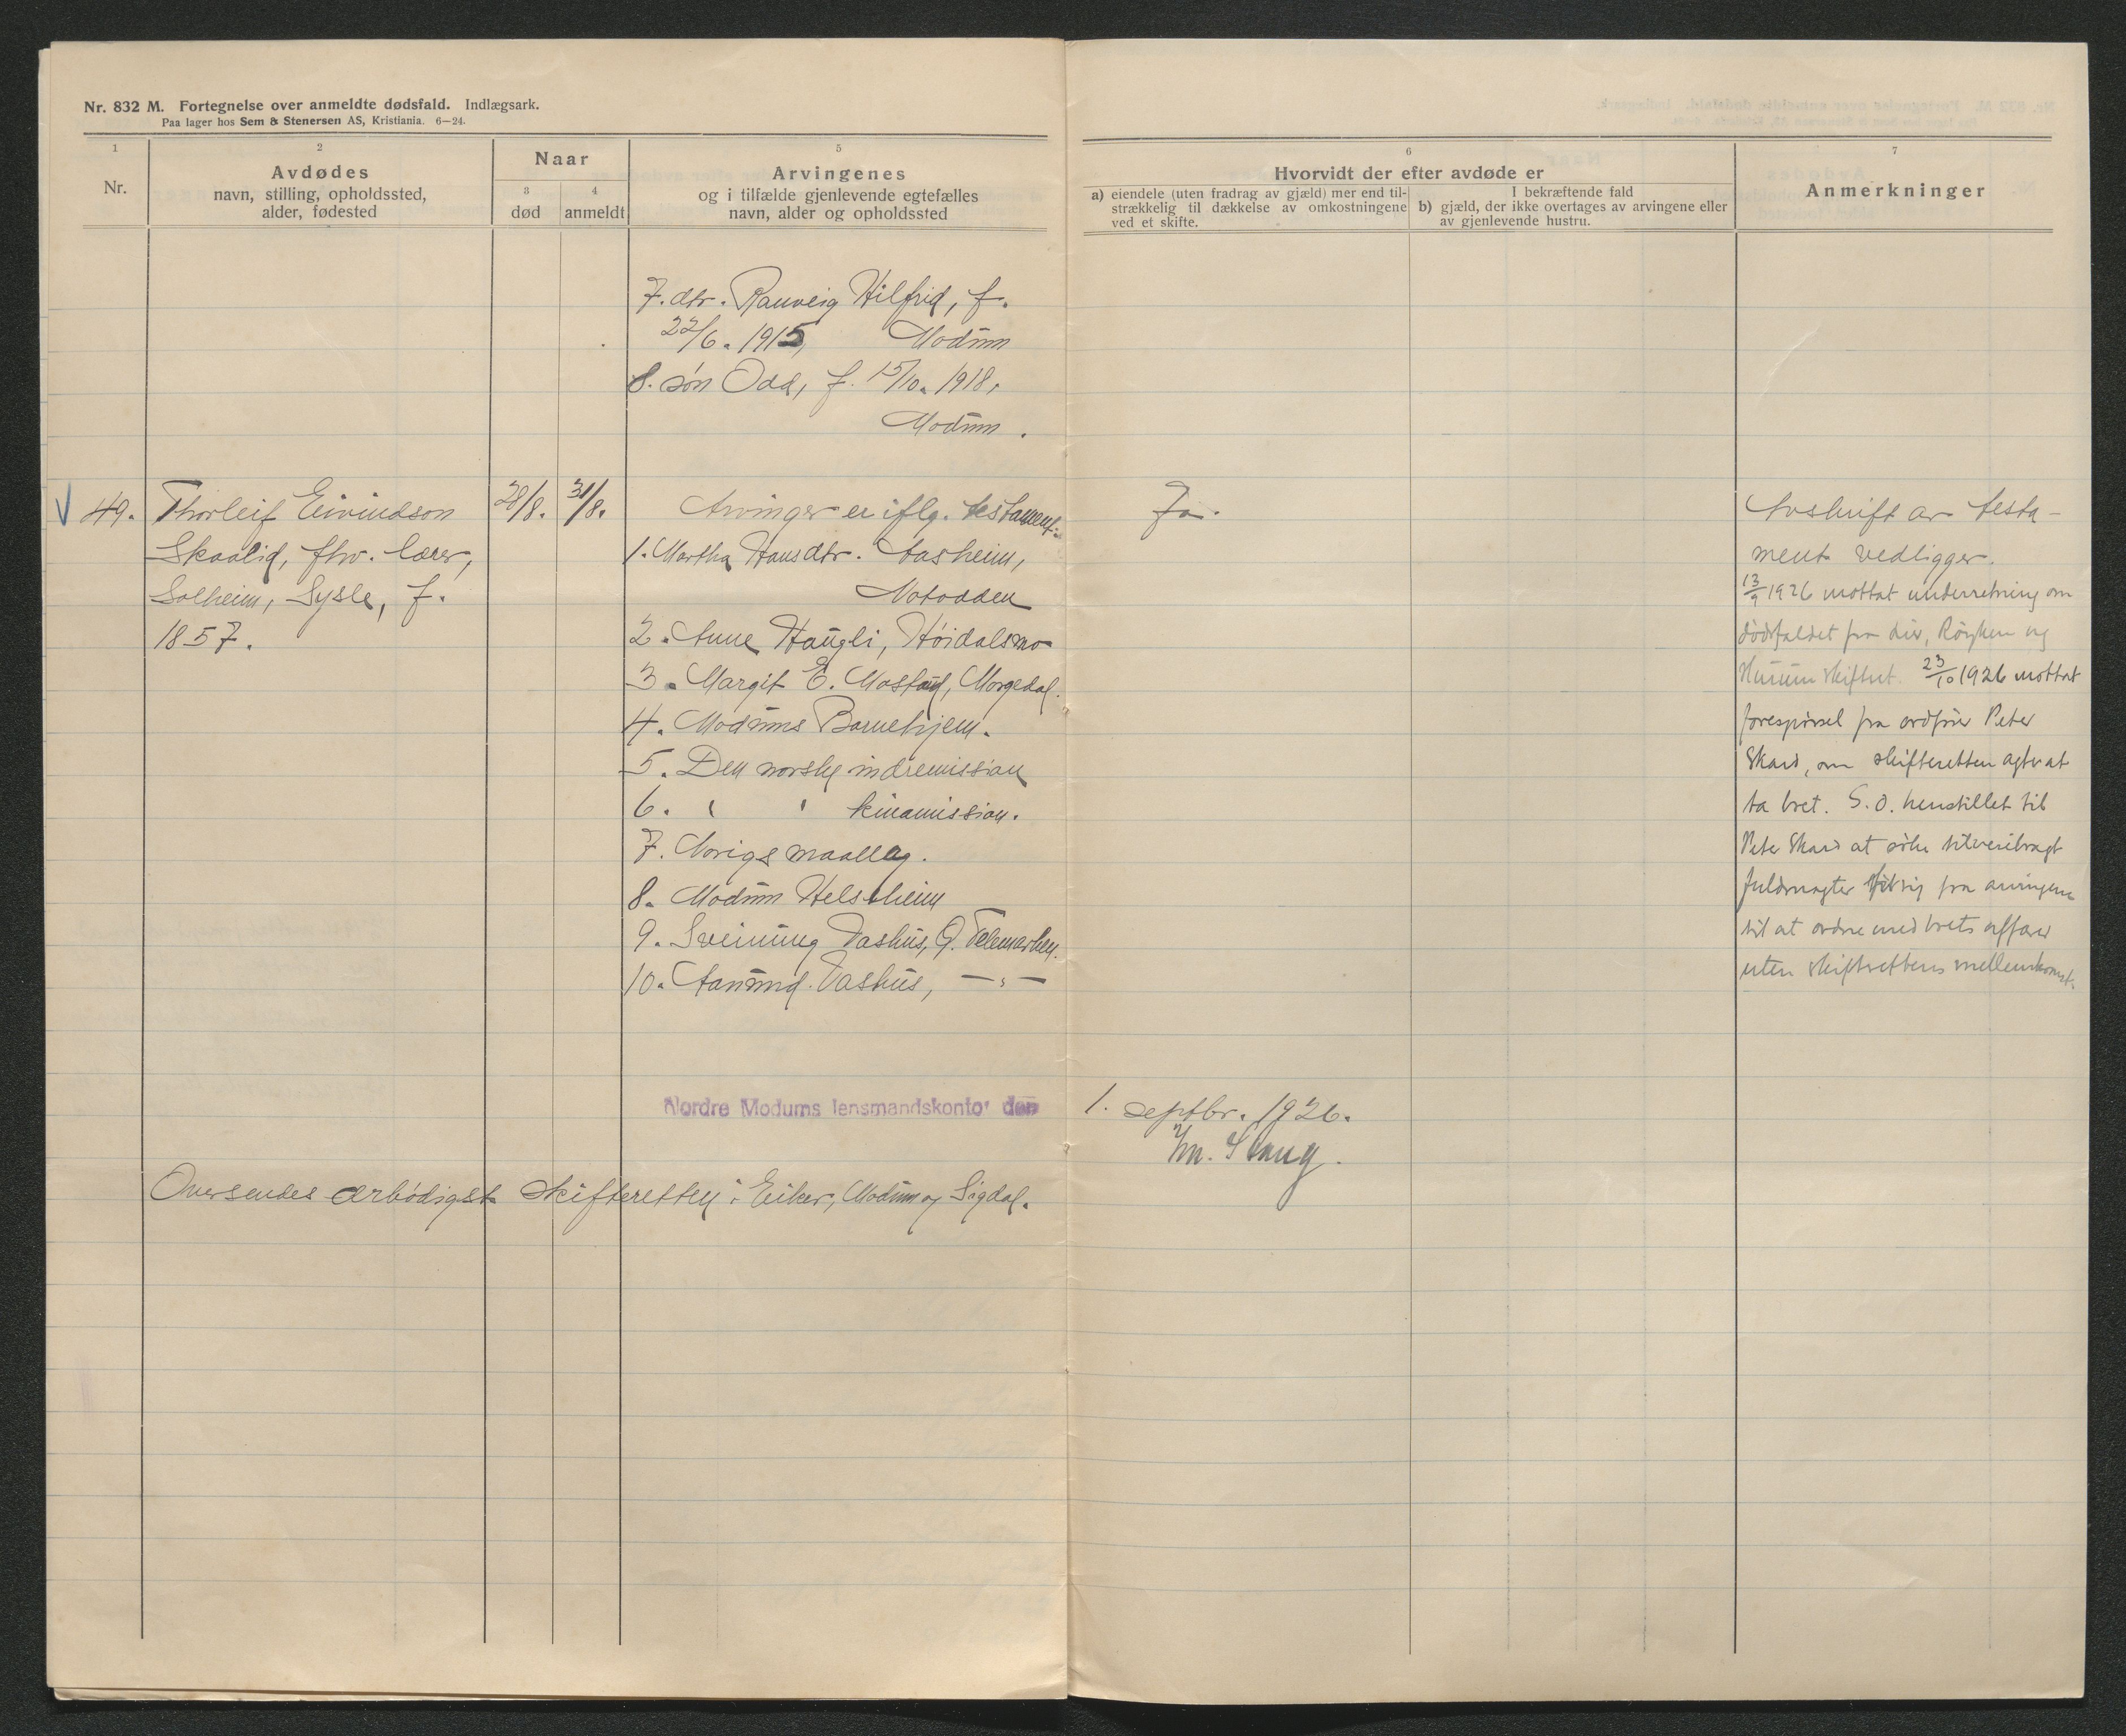 Nr. 832 M. Fortegnelse over anmeldte dødsfald. Indlægsark.
Paa lager hos Sem & Stenersen AS, Kristiania. 6—24.
1
Nr.
2
Avdødes
navn, stilling, opholdssted,
alder, fødested
Naar
3
død
4
anmeldt
5
Arvingenes
og i tilfælde gjenlevende egtefælles
navn, alder og opholdssted
6
Hvorvidt der efter avdøde er
a) eiendele (uten fradrag av gjæld) mer end til-
strækkelig til dækkelse av omkostningene
ved et skifte.
I bekræftende fald
b) gjæld, der ikke overtages av arvingene eller
av gjenlevende hustru.
7
Anmerkninger
7. dtr. Rauveig Hilfrid, f.
22/6. 1915, Modum
8. søn Odd, f. 15/10. 1918,
Modum.
49. Thorleif Eivindson
Skaalid, fhv. lærer,
Solheim, Sysle, f.
1857.
28/8. 31/8.
Arvinger er iflg. testament:
1. Martha Hansdtr. Aasheim,
Notodden
2. Anne Haugli, Høidalsmo
3. Margit E. Mostad, Morgedal.
4. Modums Barnehjem.
5. Den norske indremission
6. " " kinamission.
7. Norigs maallag.
8. Modum Helseheim
9. Sveinung Vashus, Ø. Telemarken.
10. Aanund Vashus, — " —
Ja.
Avskrift av testa-
ment vedligger.
13/9 1926 mottat underretning om
dødsfaldet fra Lier, Røyken og
Hurum skifteret. 23/10 1926 mottat
forespørsel fra ordfører Peter
Skard, om skifteretten agter at
ta boet. S. d. henstillet til
Peter Skard at søke tilveiebragt
fuldmagter til sig fra arvingene
til at ordne med boets affærer
uten skifterettens mellemkomst.
Nordre Modums lensmandskontor den 1. septbr. 1926.
Im. Stang.
Oversendes ærbødigst skifteretten i Eiker, Modum og Sigdal.